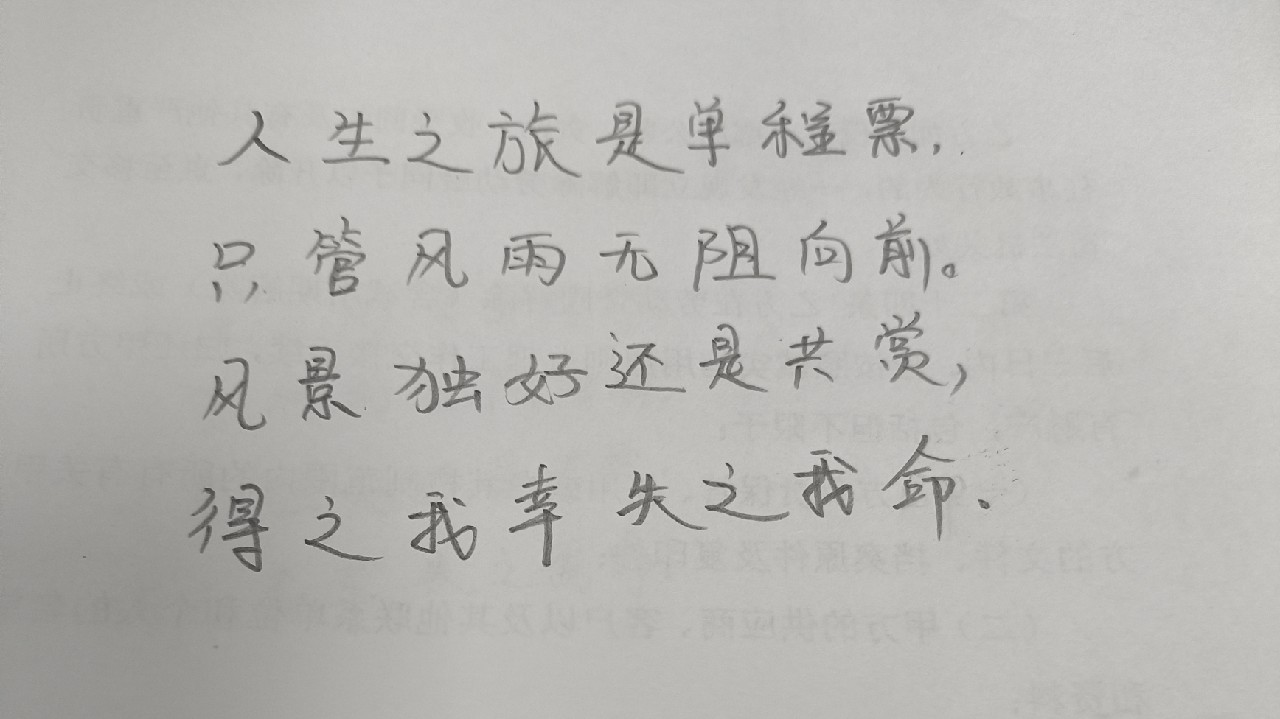 人生之旅是单程票,
只管风雨无阻向前。
风景独好还是共赏,
得之我幸失之我命.